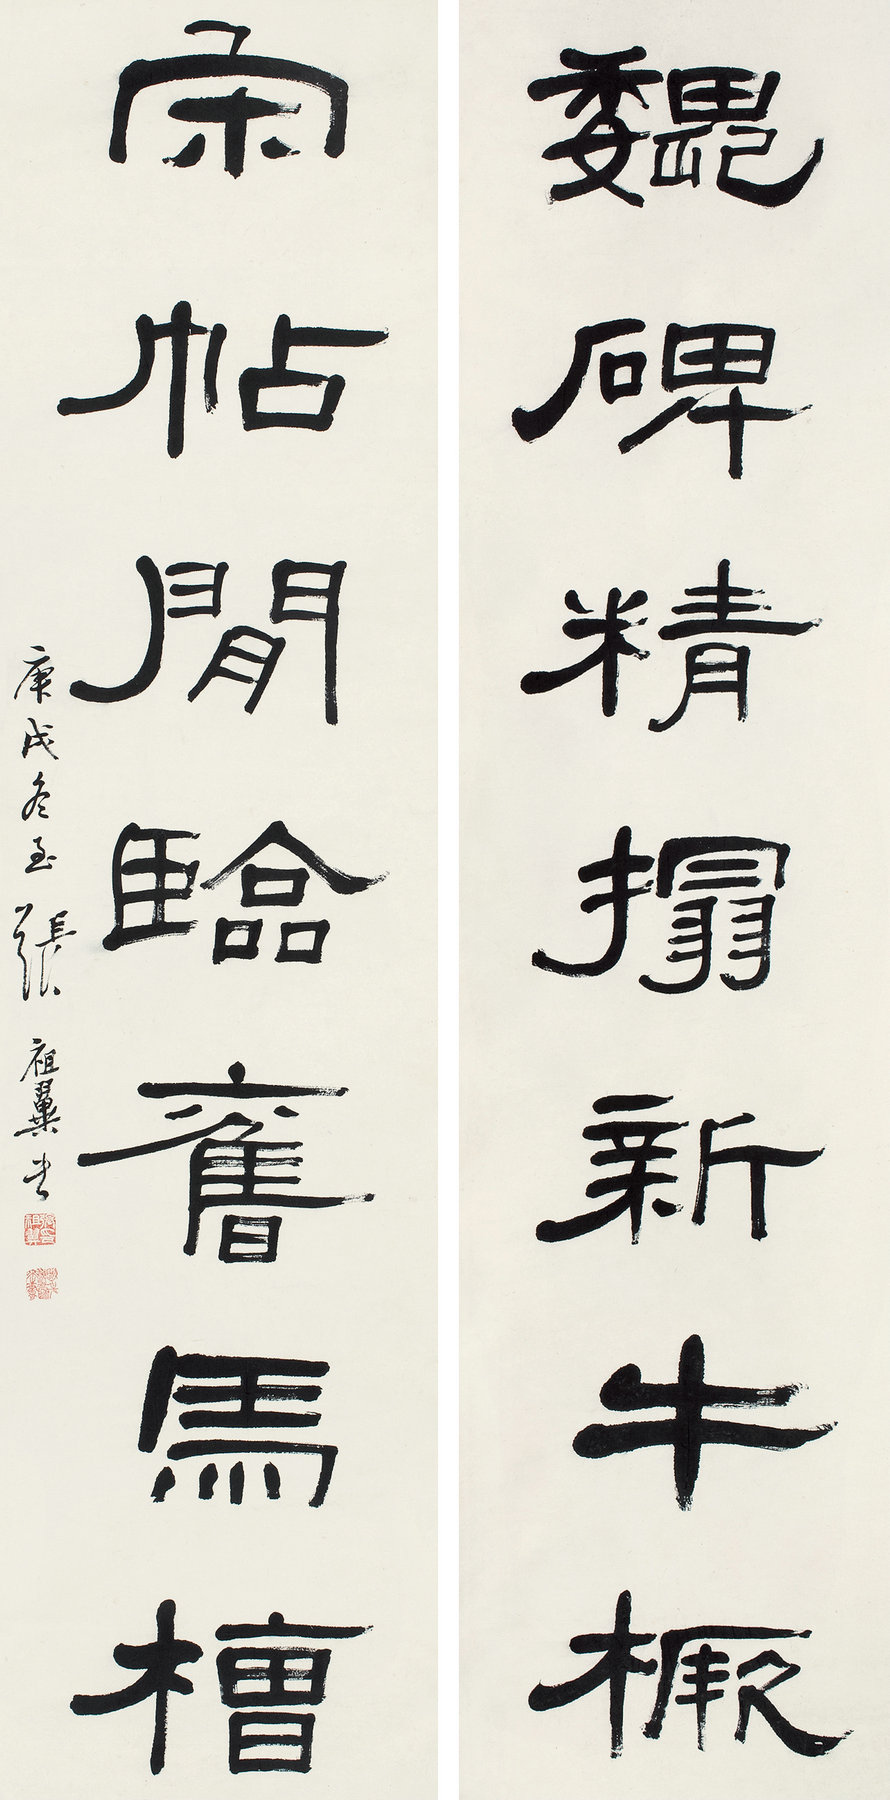 魏碑精搨新牛橛
宋帖閒臨舊馬槽
庚戌冬至張祖翼書